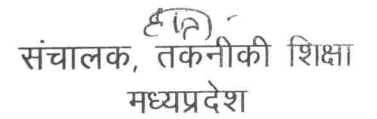 संचालक, तकनीकी शिक्षा
मध्यप्रदेश